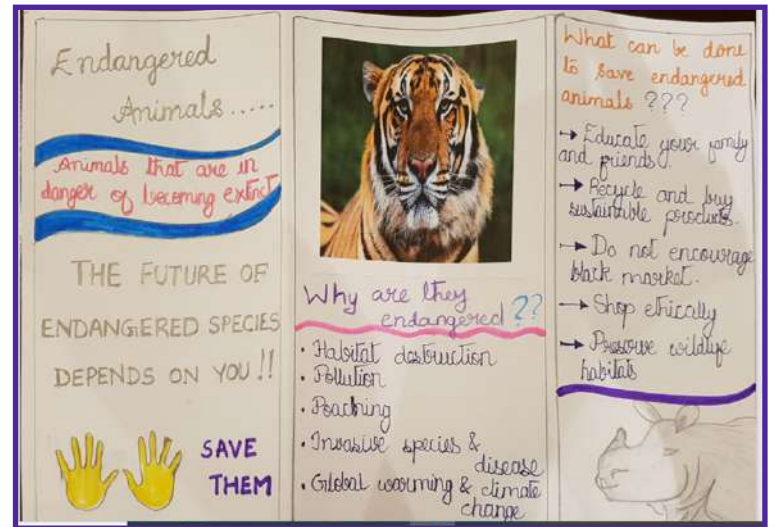 Endangered
Animals.....
Animals that are in
danger of becoming extinct
THE FUTURE OF
ENDANGERED SPECIES
DEPENDS ON YOU!!
SAVE
THEM
Why are they
endangered??
• Habitat destruction
• Pollution
• Poaching
• Invasive species &
disease
• Global warming & climate
change
What can be done
to save endangered
animals ???
→ Educate your family
and friends.
→ Recycle and buy
sustainable products.
→ Do not encourage
black market.
→ Shop ethically
→ Preserve wildlife
habitats